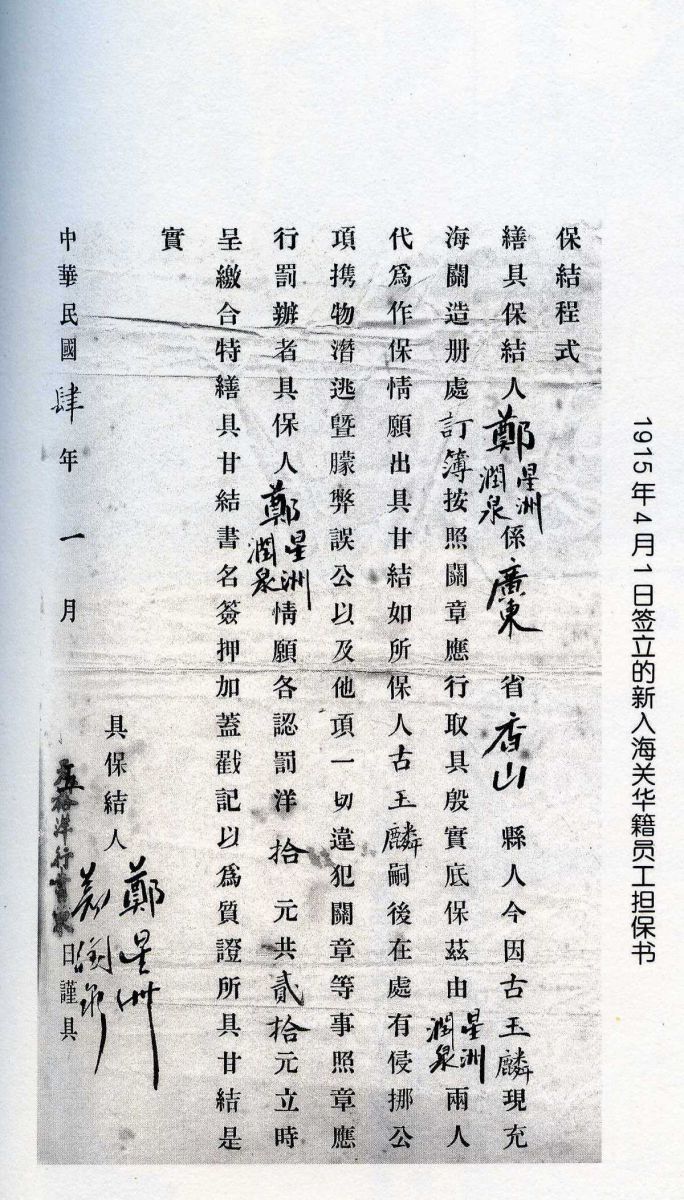 保結程式
繕具保結人鄭星洲潤泉係廣東省香山縣人今因古玉麟現充
海關造册處訂簿按照關章應行取具殷實底保茲由星洲潤泉兩人
代爲作保情願出具甘結如所保人古玉麟嗣後在處有侵挪公
項携物潛逃暨朦弊誤公以及他項一切違犯關章等事照章應
行罰辦者具保人鄭星洲潤泉情願各認罰洋拾元共貳拾元立時
呈繳合特繕具甘結書名簽押加蓋戳記以爲質證所具甘結是
實
具保結人鄭星洲
中華民國肆年一月日謹具
洋行書
1915年4月1日签立的新入海关华籍员工担保书